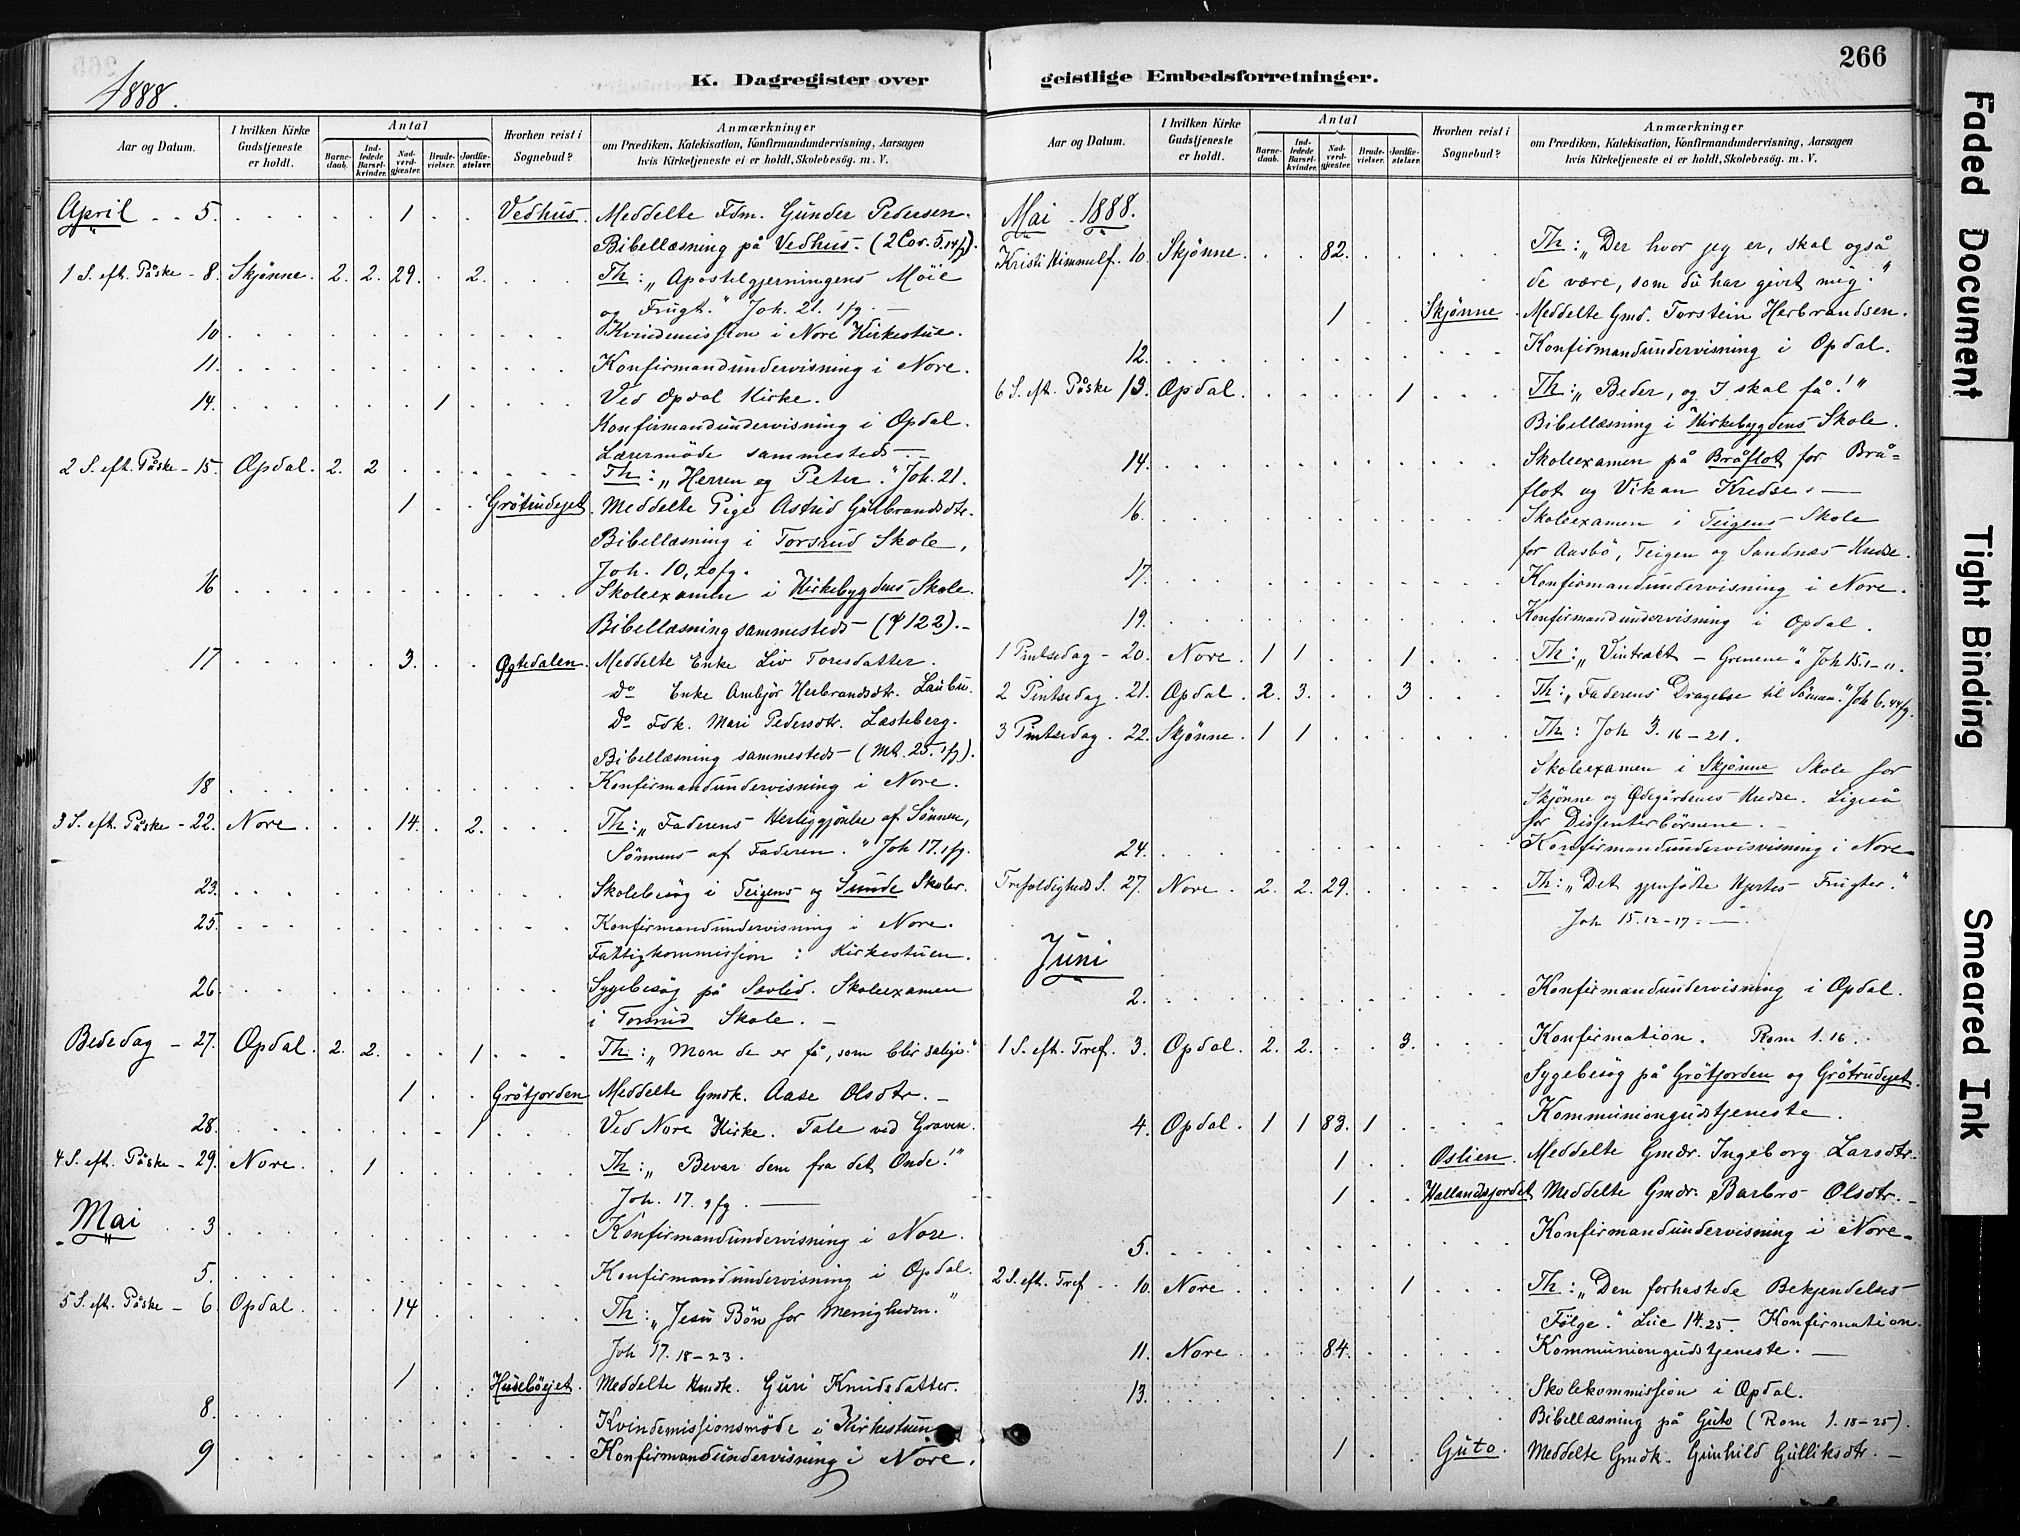 266
1888.
K. Dagregister over geistlige Embedsforretninger.
Aar og Datum. I hvilken Kirke Gudstjeneste er holdt. Antal Barnedaab. Indledede Barselkvinder. Nadverdgjæster. Brudevielser. Jordfæstelser. Hvorhen reist i Sognebud? Anmærkninger om Prædiken, Katekisation, Konfirmandundervisning, Aarsagen hvis Kirketjeneste ei er holdt, Skolebesøg. m. V.
April 5. 1 Vedhus. Meddelte Fdm. Gunder Pedersen.
Bibellæsning på Vedhus. (2 Cor. 5. 14 fg).
1 S. eft. Påske - 8. Skjönne. 2. 2. 29. 2. Th: „Apostelgjerningens Möie
og Frugt." Joh. 21. 1 fg. —
10 Kvindemission i Nore Kirkestue.
11. Konfirmandundervisning i Nore.
14. 1 Ved Opdal Kirke.
Konfirmandundervisning i Opdal.
Lærermöde sammesteds —
2 S. eft. Påske - 15. Opdal. 2. 2 Th: „Herren og Peter". Joh. 21.
1 Grötrudejet. Meddelte Pige Astrid Gulbrandsdtr.
Bibellæsning i Torsrud Skole,
Joh. 10, 20 fg.
16 Skoleexamen i Kirkebygdens Skole.
Bibellæsning sammesteds — (ψ 122). —
17 3. Ögtedalen. Meddelte Enke Liv Toresdatter.
Do Enke Ambjör Herbrandsdtr. Laubu.
Do Fdk. Mari Pedersdtr. Læsteberg.
Bibellæsning sammesteds — (Mt. 25. 1 fg).
18 Konfirmandundervisning i Nore.
3 S. eft. Påske - 22. Nore. 14. 2. Th: „Faderens Herliggjörelse af Sönnen,
Sönnens af Faderen." Joh 17. 1 fg.
23. Skolebesög i Teigens og Sunde Skoler.
25. Konfirmandundervisning i Nore.
Fattigkommission i Kirkestuen.
26. Sygebesög på Sævlid. Skoleexamen
i Torsrud Skole. —
Bededag - 27. Opdal. 2. 2. 1 Th: „Mon de er få, som blir salige."
1 Grötjorden Meddelte Gmdk. Aase Olsdtr. —
28. 1 Ved Nore Kirke. Tale ved Graven.
4 S. eft. Påske - 29. Nore. 1 Th: „Bevar dem fra det Onde!"
Joh. 17. 9 fg. —
Mai 3 Konfirmandundervisning i Nore.
5. Konfirmandundervisning i Opdal.
5 S. eft. Påske - 6. Opdal. 14 Th: „Jesu Bön for Menigheden."
Joh 17. 18-23.
1 Huseböejet. Meddelte Kmdk. Guri Knudsdatter.
8. Kvindemissionsmöde i Kirkestuen
9 Konfirmandundervisning i Nore.
Aar og Datum. I hvilken Kirke Gudstjeneste er holdt. Antal Barnedaab. Indledede Barselkvinder. Nadverdgjæster. Brudevielser. Jordfæstelser. Hvorhen reist i Sognebud? Anmærkninger om Prædiken, Katekisation, Konfirmandundervisning, Aarsagen hvis Kirketjeneste ei er holdt, Skolebesøg. m. V.
Mai 1888.
Kristi Himmelf. 10. Skjönne. 82. Th: „Der hvor jeg er, skal også
de være, som du har givet mig."
1 Skjönne Meddelte Gmd. Torstein Herbrandsen.
12. Konfirmandundervisning i Opdal.
6 S. eft. Påske 13. Opdal. 1 Th: „Beder, og I skal få!"
Bibellæsning i Kirkebygdens Skole.
14. Skoleexamen på Bråflot for Brå=
flot og Vikan Kredse. —
16. Skoleexamen i Teigens Skole
for Aasbö, Teigen og Sandnæs Kredse.
17. Konfirmandundervisning i Nore.
19. Konfirmandundervisning i Opdal.
1 Pintsedag - 20. Nore. 1 1 1 Th: „Vintræet — Grenene". Joh 15. 1-11.
2 Pintsedag. 21. Opdal. 2. 3. 3 Th: „Faderens Dragelse til Sönnen". Joh 6. 44 fg.
3 Pintsedag. 22. Skjönne. 1 1 Th: Joh 3. 16-21.
Skoleexamen i Skjönne Skole for
Skjönne og Ödegårdenes Kredse. Ligeså
for Dissenterbörnene. —
24. Konfirmandundervisvisning i Nore
Trefoldigheds S. 27. Nore. 2. 2. 29. Th: „Det gjenfödte Hjertes Frugter."
Joh 15. 12-17. —
Juni
2. Konfirmandundervisning i Opdal.
1 S. eft. Tref. 3. Opdal. 2. 2. 3. Konfirmation. Rom 1. 16.
Sygebesög på Grötjorden og Grötrudejet.
4. Opdal. 1 1 83. 1 Kommuniongudstjeneste.
1 Oslien. Meddelte Gmdr. Ingeborg Larsdtr.
1 Hallandsjordet Meddelte Gmdr. Barbro Olsdtr. —
5. Konfirmandundervisning i Nore —
2 S. eft. Tref. 10. Nore. 1 Th: „Den forhastede Bekjendelses
Fölge." Luc 14. 25. Konfirmation.
11. Nore. 84. Kommuniongudstjeneste. —
13. Skolekommission i Opdal.
Bibellæsning på Guto (Rom 1. 18-25).
1 Guto. Meddelte Gmdk. Gunhild Gulliksdtr. —
Faded Document
Tight Binding
Smeared Ink